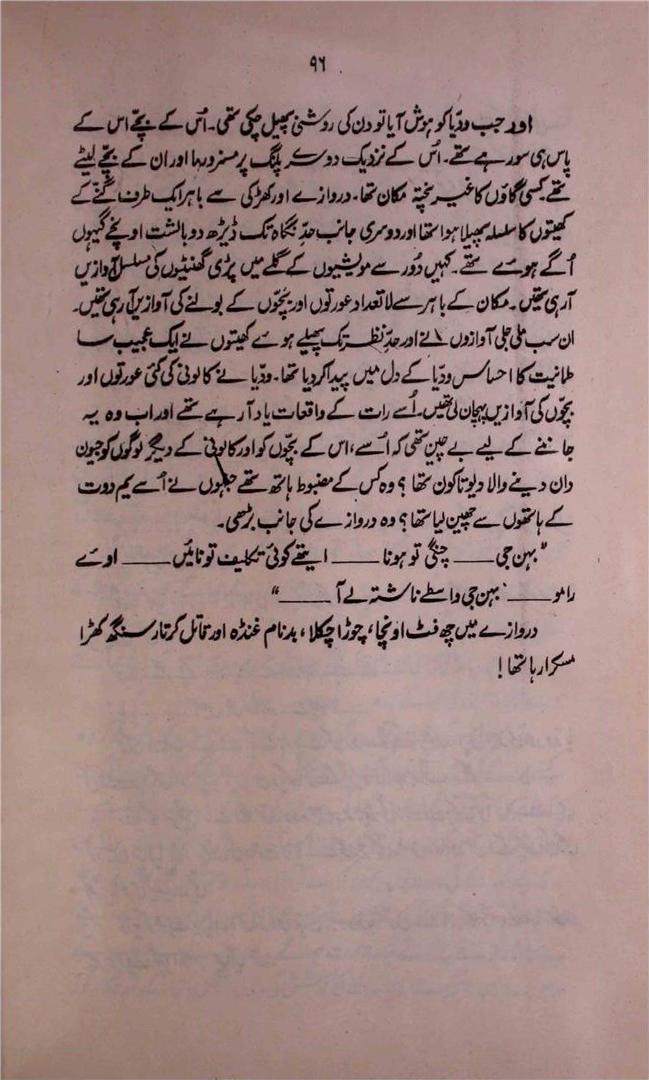 ۹۶
اور جب ودیا کو ہوش آیا تو دن کی روشنی پھیل چکی تھی۔ اُس کے بچّے اس کے
پاس ہی سو رہے تھے۔ اُس کے نزدیک دوسرے پلنگ پر مسز ورما اور ان کے بچّے لیٹے
تھے کسی گاؤں کا غیر پختہ مکان تھا۔ دروازے اور کھڑکی سے باہر ایک طرف گنّے کے
کھیتوں کا سلسلہ پھیلا ہوا تھا اور دوسری جانب حدِّ نگاہ تک ڈیڑھ دو بالشت اونچے گیہوں
اُگے ہوئے تھے۔ کہیں دُور سے مویشیوں کے گلے میں پڑی گھنٹیوں کی مسلسل آوازیں
آ رہی تھیں۔ مکان کے باہر سے لاتعداد عورتوں اور بچّوں کے بولنے کی آوازیں آ رہی تھیں۔
ان سب ملی جلی آوازوں نے اور حدِ نظر تک پھیلے ہوئے کھیتوں نے ایک عجیب سا
طمانیت کا احساس ودیا کے دل میں پیدا کر دیا تھا۔ ودیا نے کالونی کی کئی عورتوں اور
بچّوں کی آوازیں پہچان لی تھیں۔ اُسے رات کے واقعات یاد آ رہے تھے اور اب وہ یہ
جاننے کے لیے بے چین تھی کہ اُسے، اس کے بچّوں کو اور کالونی کے دیگر لوگوں کو جیون
دان دینے والا دیوتا کون تھا؟ وہ کس کے مضبوط ہاتھ تھے جنہوں نے اُسے یم دوت
کے ہاتھوں سے چھین لیا تھا؟ وہ دروازے کی جانب بڑھی۔
”بہن جی —— چنگی تو ہونا —— ایتھے کوئی تکلیف تو نائیں —— اوئے
رامو —— بہن جی واسطے ناشتہ لے آ ——“
دروازے میں چھ فٹ اونچا، چوڑا چکلا، بدنام غنڈہ اور قاتل کرتار سنگھ کھڑا
مسکرا رہا تھا!